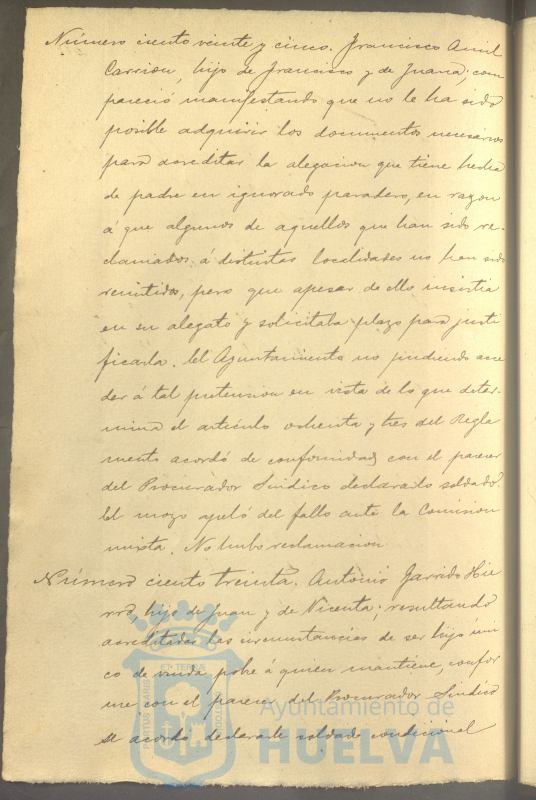 Número ciento veinte y cinco. Francisco Amil
Carrion, hijo de Francisco y de Juana; com
pareció manifestando que no le ha sido
posible adquirir los documentos necesarios
para acreditar la alegacion que tiene hecha
de padre en ignorado paradero, en razon
á que algunos de aquellos que han sido re-
clamados á distintas localidades no han sido
remitidos, pero que apesar de ello insistia
en su alegato y solicitaba plazo para justi
ficarla. El Ayuntamiento no pudiendo acce
der á tal pretension en vista de lo que deter-
mina el artículo ochenta y tres del Regla
mento acordó de conformidad con el parecer
del Procurador Síndico declararlo soldado.
El mozo apeló del fallo ante la Comision
mixta. No hubo reclamacion.
Número ciento treinta. Antonio Garrido Hie
rro, hijo de Juan y de Vicenta; resultando
acreditadas las circunstancias de ser hijo úni
co de viuda pobre á quien mantiene, confor
me con el parecer del Procurador Síndico
se acordó declararle soldado condicional
Ayuntamiento de
HUELVA
PORTUS MARIS
ET TERRAE
CUSTODIA